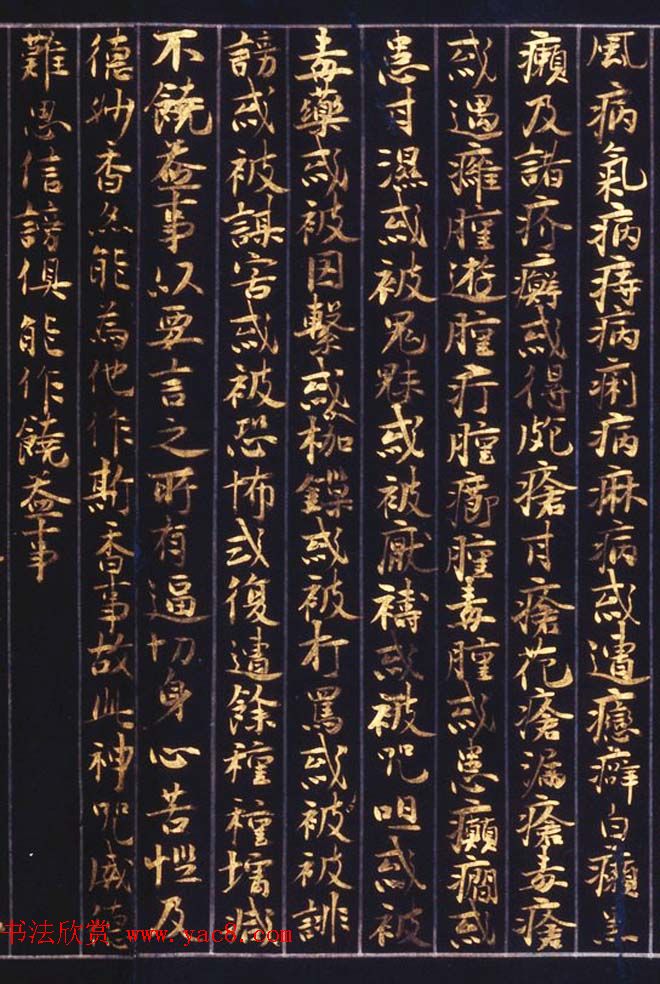 風病氣病痔病痢病痳病或遭癮癖白癩黑
癩及諸疥癬或得皰瘡甘瘡花瘡漏瘡毒瘡
或遇癰腫遊腫疔腫癤腫毒腫或患癲癇或
患甘濕或被鬼魅或被厭禱或被咒咀或被
毒藥或被囚繫或枷鏁或被打罵或被被誹
謗或被謀害或被恐怖或復遭餘種種
不饒益事以要言之所有逼切身心苦惱及
德妙香能為他作斯香事故此神咒威德
難思信謗俱能作饒益事
书法欣赏 www.yac8.com